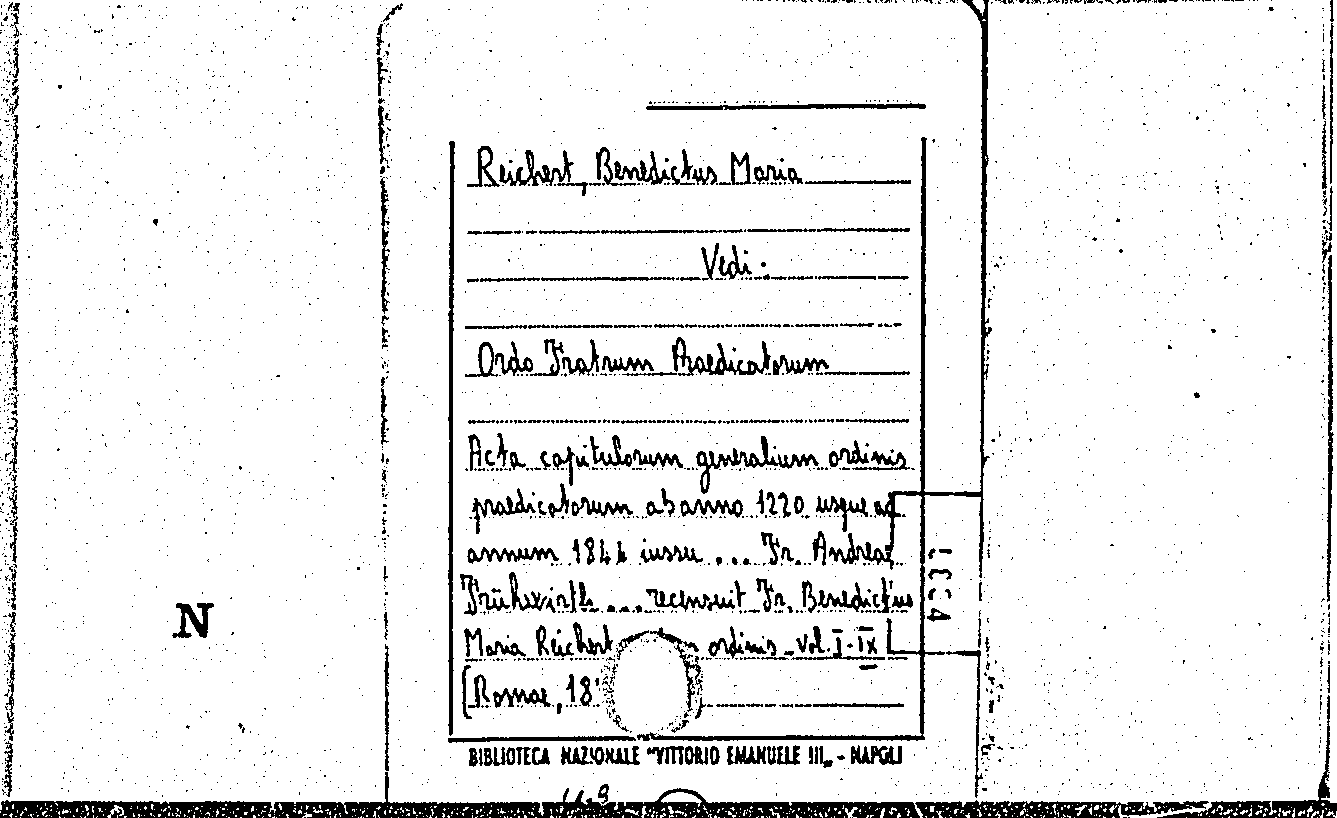 Reichert, Benedictus Maria
Vedi.
Ordo Fratrum Praedicatorum
Acta capitulorum generalium ordinis
praedicatorum ab anno 1220 usque ad
annum 1844 iussu ... Fr. Andreae
Frühwirth ... recensuit Fr. Benedictus
Maria Reichert ordinis - vol. I-IX
[Romae, 18
N
BIBLIOTECA NAZIONALE "VITTORIO EMANUELE III" - NAPOLI